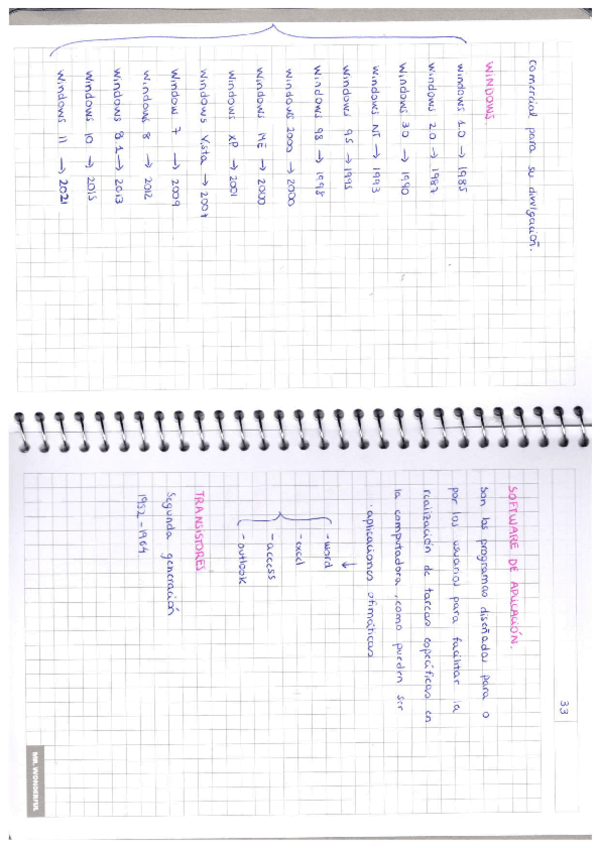 comercial para su divulgación.
WINDOWS.
windows 1.0 → 1985
windows 2.0 → 1987
windows 3.0 → 1990
windows NT → 1993
windows 95 → 1995
windows 98 → 1998
windows 2000 → 2000
windows ME → 2000
windows XP → 2001
windows Vista → 2007
window 7 → 2009
windows 8 → 2012
windows 8.1 → 2013
windows 10 → 2015
windows 11 → 2021
33
SOFTWARE DE APLICACIÓN.
son los programas diseñados para o
por los usuarios para facilitar la
realización de tareas específicas en
la computadora, como pueden ser
· aplicaciones ofimáticas
↓
- word
- excel
- access
- outlook
TRANSISTORES
Segunda generación
1952 - 1964
MR. WONDERFUL